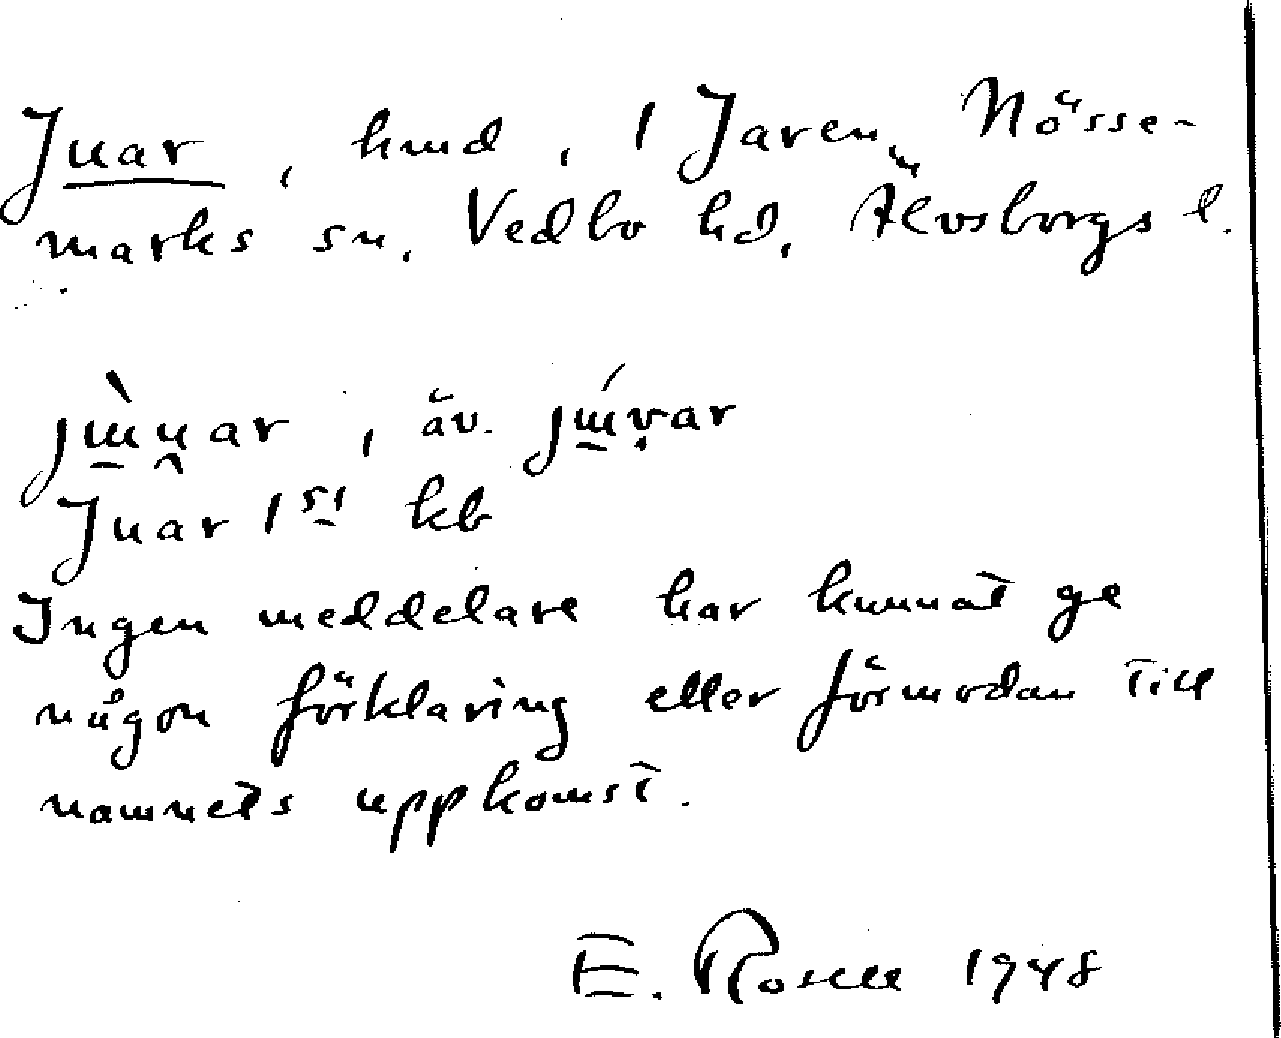 Juar, hmd, 1 Jaren, Nösse-
marks sn. Vedbo hd, Älvsborgs l.
äv.
Juar 1951 kb
Ingen meddelare har kunnat ge
någon förklaring eller förmodan till
namnets uppkomst.
E. Rosell 1948